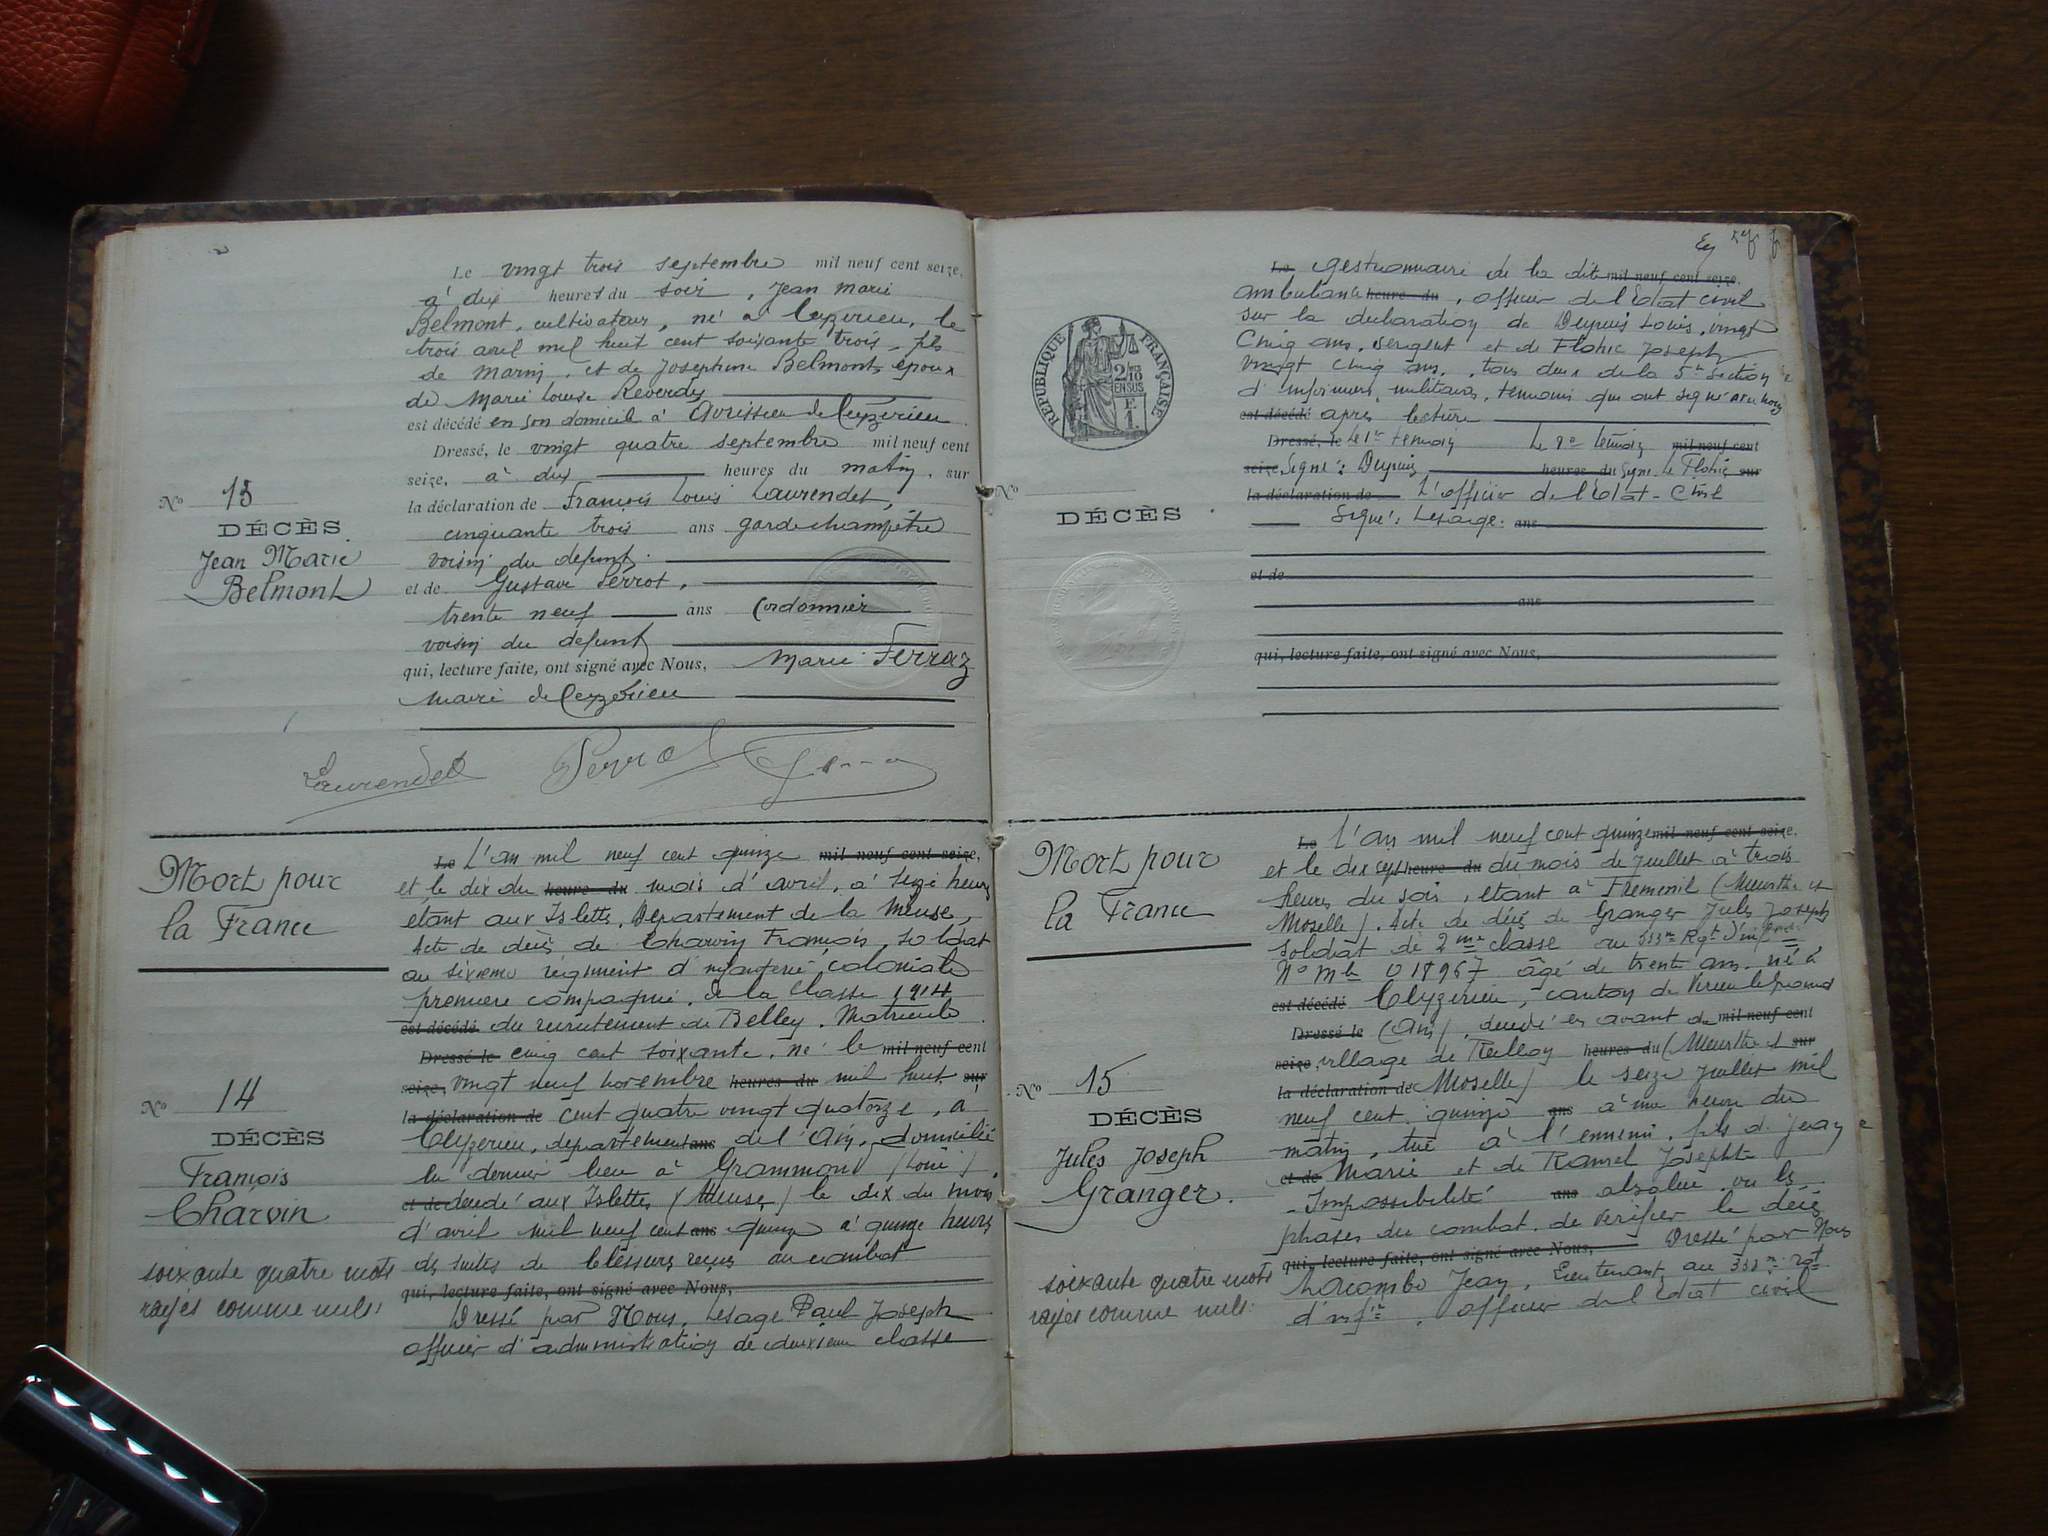 Le vingt trois septembre mil neuf cent seize,
à dix heures du soir, Jean Marie
Belmont, cultivateur, né à Ceyzerieu, le
trois avril mil huit cent soixante trois, fils
de Marin, et de Josephine Belmont, époux
de Marie Louise Reverdy
est décédé en son domicile à Avrissieu de Ceyzerieu.
Dressé, le vingt quatre septembre mil neuf cent
seize, à dix heures du matin, sur
la déclaration de François Louis Laurendet,
cinquante trois ans garde champêtre
voisin du defunt.
et de Gustave Perrot,
trente neuf ans Cordonnier
voisin du defunt
qui, lecture faite, ont signé avec Nous, Marie Ferraz
Maire de Ceyzerieu
Laurendet Perrot
No 13
DÉCÈS
Jean Marie
Belmont
Mort pour
la France
No 14
DÉCÈS
François
Charvin
soixante quatre mots
rayés comme nuls
Le L'an mil neuf cent quinze mil neuf cent seize,
et le dix du heure du mois d'avril, à seize heures
étant aux Islettes, Département de la Meuse,
Acte de décès de Charvin François, soldat
au sixieme régiment d'infanterie coloniale
premiere compagnie, de la classe 1914
est décédé du recrutement de Belley. Matricule
Dressé le cinq cent soixante, né le mil neuf cent
seize, vingt neuf novembre heures du mil huit sur
la déclaration de cent quatre vingt quatorze, à
Ceyzerieu, departement ans de l'Ain, domicilié
en dernier lieu à Grammond (Loire),
et de decedé aux Islettes (Meuse) le dix du mois
d'avril mil neuf cent ans quinze à quinze heures
des suites de blessures reçues au combat
qui, lecture faite, ont signé avec Nous,
Dressé par Nous, Lesage Paul Joseph
officier d'administration de deuxieme classe
Le gestionnaire de la dite mil neuf cent seize,
ambulance heure du, officier de l'Etat civil
sur la declaration de Dupuis Louis, vingt
cinq ans, sergent et de Flohic Joseph
vingt cinq ans, tous deux de la 5e Section
d'infirmiers militaires, temoins qui ont signé avec nous
est décédé apres lecture
Dressé, le Le 1er temoin Le 2e témoin mil neuf cent
seize, Signé: Dupuis heures du Signé: Le Flohic sur
la déclaration de L'officier de l'Etat-Civil
Signé: Lesage. ans
et de
ans
qui, lecture faite, ont signé avec Nous,
RÉPUBLIQUE FRANÇAISE
No
DÉCÈS
Mort pour
la France
No 15
DÉCÈS
Jules Joseph
Granger.
soixante quatre mots
rayés comme nuls.
Le L'an mil neuf cent quinze mil neuf cent seize,
et le dix sept heure du du mois de juillet à trois
heures du soir, étant à Fremenil (Meurthe et
Moselle). Acte de décès de Granger Jules Joseph
soldat de 2me classe au 333me Rgt d'infanterie
No Mle 018967 âgé de trente ans, né à
est décédé Ceyzerieu, canton de Virieu le grand
Dressé le (Ain), decedé en avant du mil neuf cent
seize, village de Reillon heures du (Meurthe et sur
la déclaration de Moselle) le seize juillet mil
neuf cent quinze ans à une heure du
matin, tué à l'ennemi, fils de Jean
et de Marie et de Josephte
Impossibilité ans absolue vu les
phases du combat de vérifier le décès
qui, lecture faite, ont signé avec Nous, Dressé par Nous
Lacombe Jean, Lieutenant au 333me Rgt
d'infie, officier de l'Etat civil